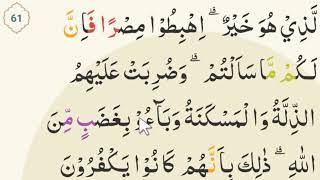 61
لَّذِيْ هُوَ خَيْرٌ ۗ اِهْبِطُوْا مِصْرًا فَاِنَّ
لَكُمْ مَّا سَاَلْتُمْ ۗ وَضُرِبَتْ عَلَيْهِمُ
الذِّلَّةُ وَالْمَسْكَنَةُ وَبَاۤءُوْ بِغَضَبٍ مِّنَ
اللّٰهِ ۗ ذٰلِكَ بِاَنَّهُمْ كَانُوْا يَكْفُرُوْنَ